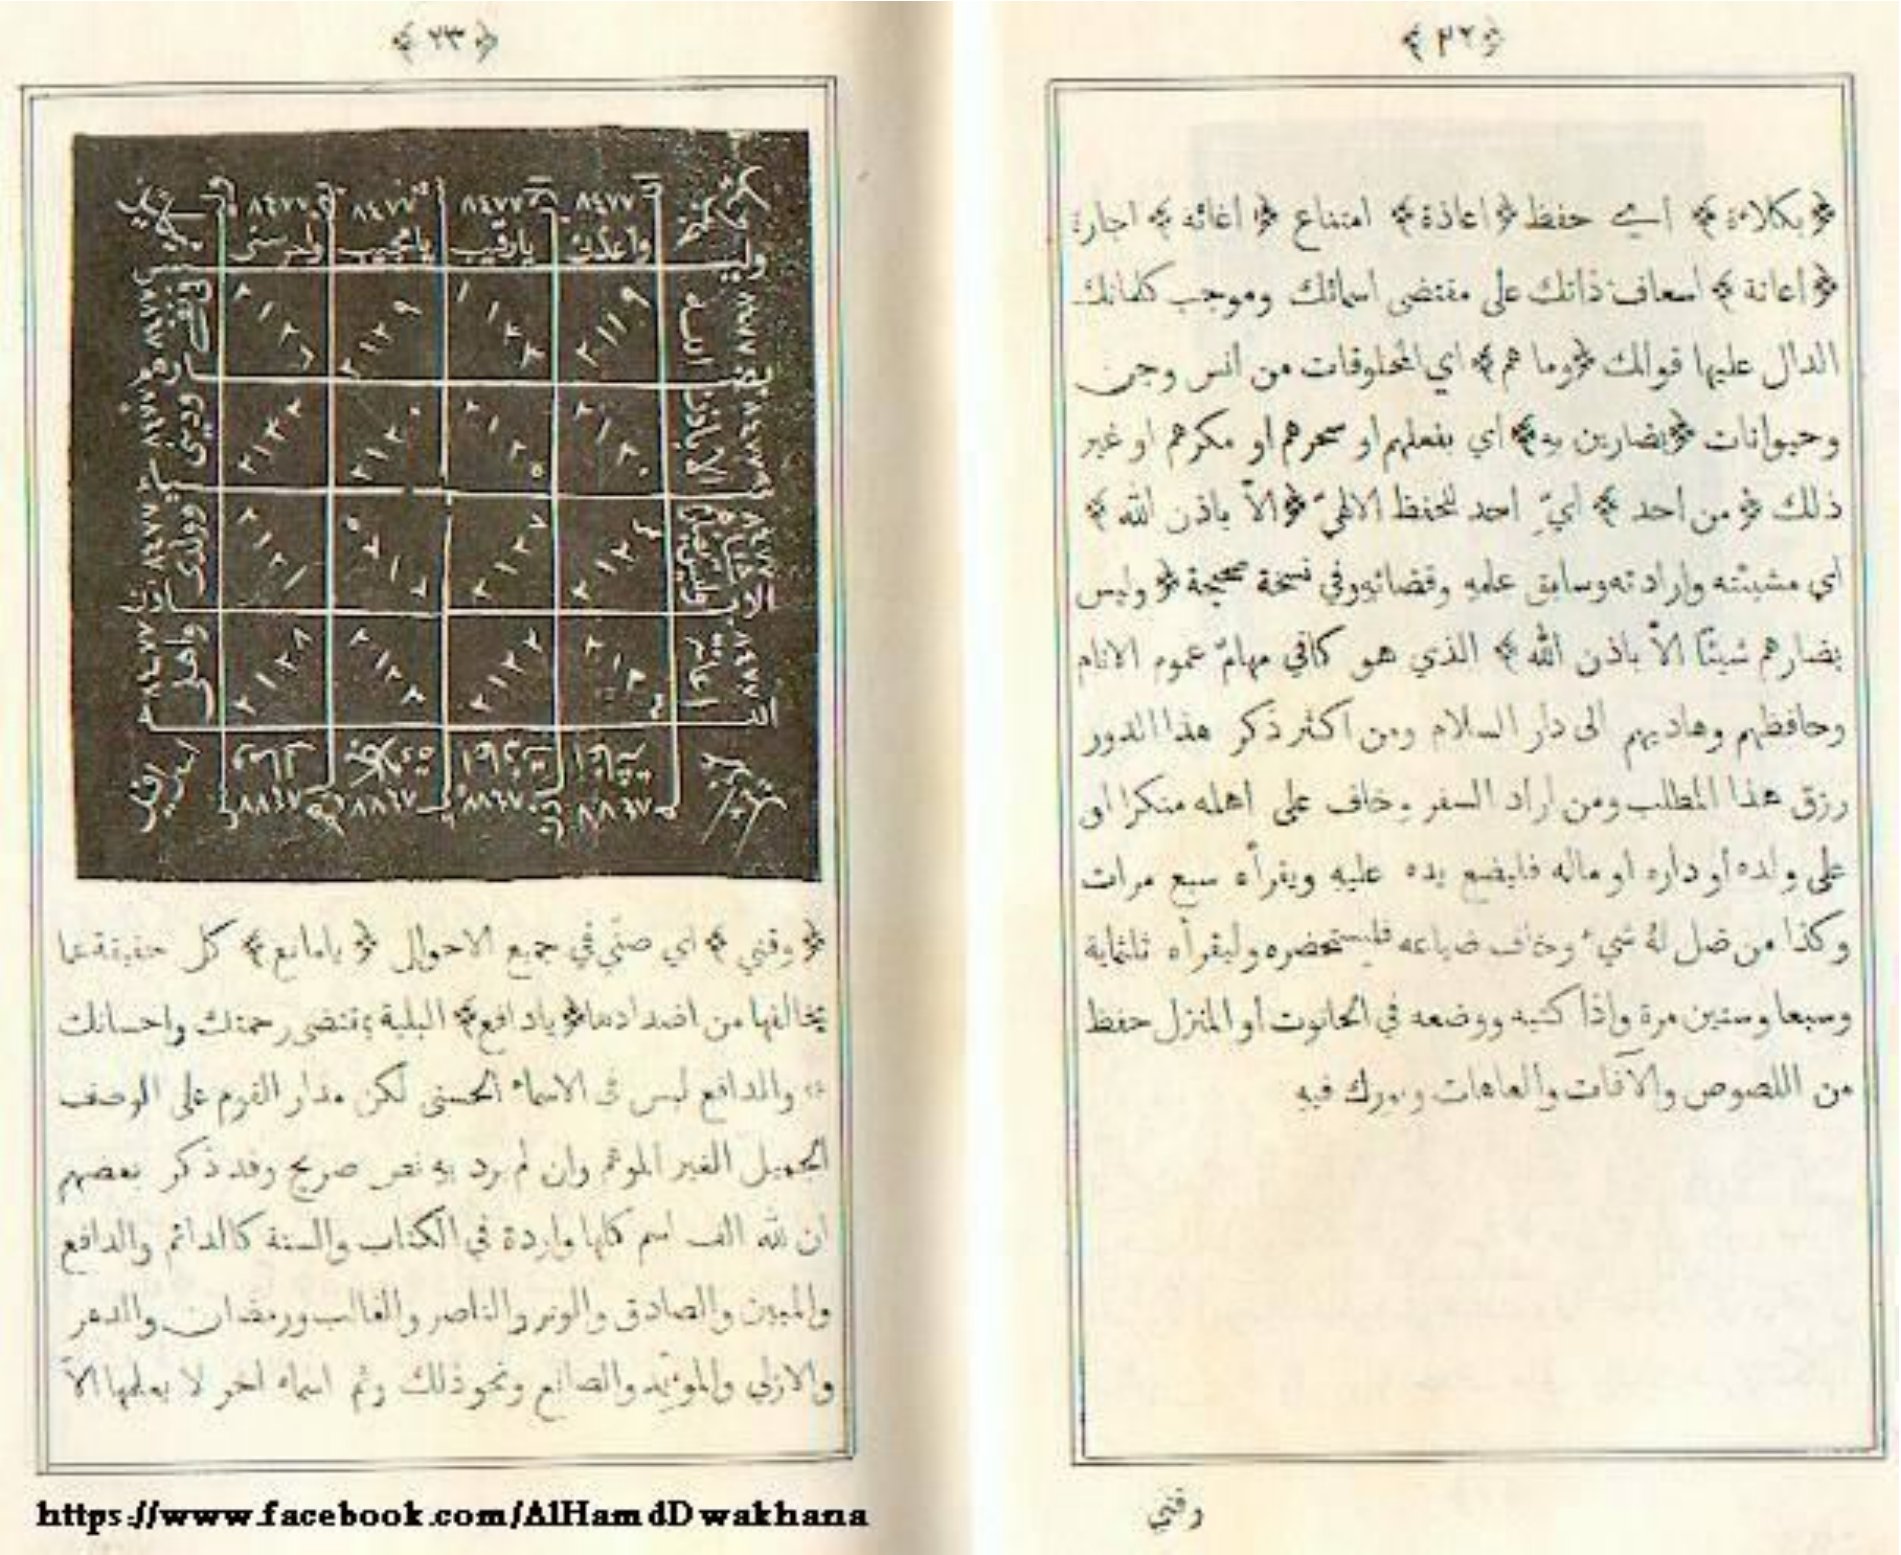 ﴿ ٢٢ ﴾
﴿ بكلاءة ﴾ أي حفظ ﴿ اعاذة ﴾ امتناع ﴿ اغاثه ﴾ اجارة
﴿ اعانة ﴾ اسعاف ذاتك على مقتضى اسمائك وموجب كلماتك
الدال عليها قولك ﴿ وما هم ﴾ اي المخلوقات من انس وجن
وحيوانات ﴿ بضارين به ﴾ اي بفعلهم او سحرهم او مكرهم او غير
ذلك ﴿ من احد ﴾ ايّ احد للحفظ الالهيّ ﴿ الاّ باذن الله ﴾
اي مشيئته وارادته وسابق علمه وقضائه وفي نسخة صحيحة ﴿ وليس
بضارهم شيئا الاّ باذن الله ﴾ الذي هو كافي مهامّ عموم الانام
وحافظهم وهاديهم الى دار السلام ومن اكثر ذكر هذا الدور
رزق هذا المطلب ومن اراد السفر وخاف على اهله منكرا او
على ولده او داره او ماله فليضع يده عليه ويقرأه سبع مرات
وكذا من ضل لهُ شيء وخاف ضياعه فليستحضره وليقرأه ثلثماية
وسبعا وستين مرة واذا كتبه ووضعه في الحانوت او المنزل حفظ
من اللصوص والآفات والعاهات وبورك فيه
وقني
﴿ ٢٣ ﴾
٨٤٧٧ ٨٤٧٧ ٨٤٧٧ ٨٤٧٧
واعذني يارقيب يامجيب واحرسني
٢١١٩ ٢١٢٩
٢١٣٠ ٢١٢٠
٢١٢٤ ٢١٢٧ ٢١٢١
٢١٢٢ ٢١٢٨
﴿ وقني ﴾ اي صنّي في جميع الاحوال ﴿ يامانع ﴾ كل حقيقة عما
يخالفها من اضدادها ﴿ يادافع ﴾ البلية بمقتضى رحمتك واحسانك
والدافع ليس في الاسماء الحسنى لكن مدار القوم على الوصف
الجميل الغير الموهم وان لم يرد به نص صريح وقد ذكر بعضهم
ان لله الف اسم كلها واردة في الكتاب والسنة كالدائم والدافع
والمبين والصادق والوتر والناصر والغالب ورمضان والدهر
والازلي والمؤيّد والصانع ونحو ذلك وثم اسماء اخر لا يعلمها الاّ
https://www.facebook.com/AlHamdDwakhana